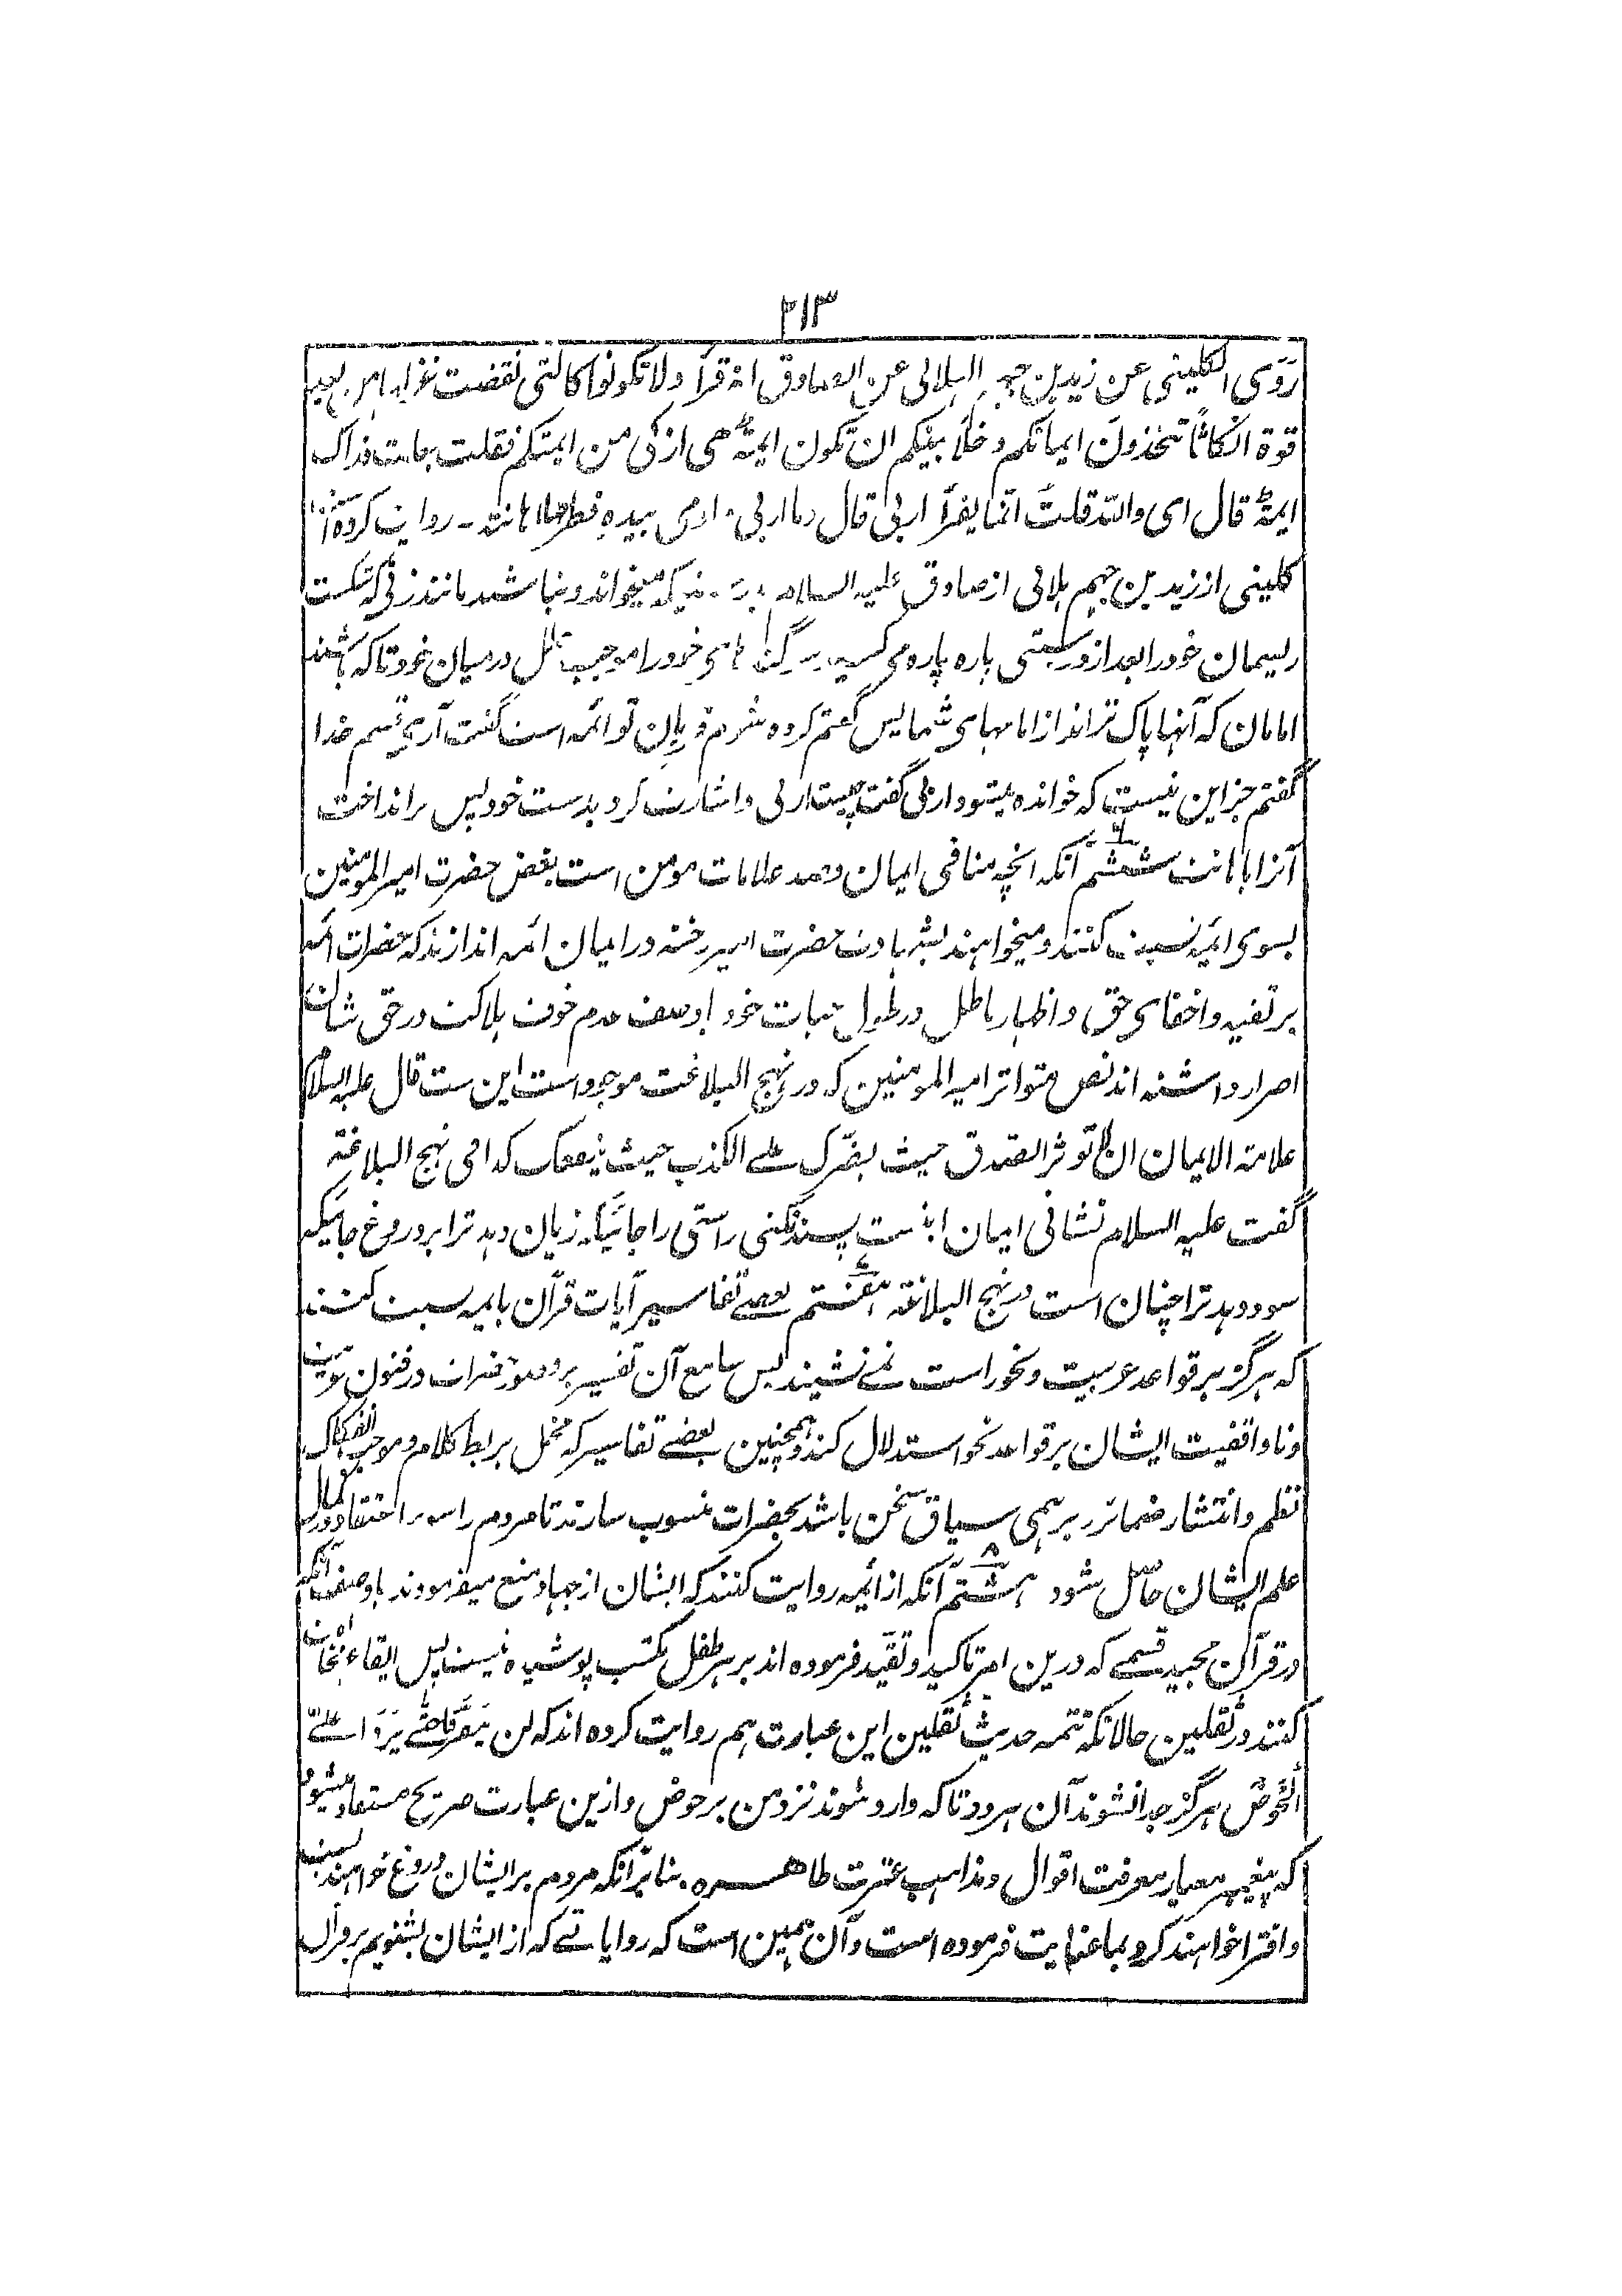 ۲۱۳
روی الکلینی عن زید بن جہم الہلالی عن الصادق انہ قرأ ولا تکونوا کالتی نقضت غزلہا من بعد
قوة انکاثا تتخذون ایمانکم دخلا بینکم ان تکون ایمۃ ھی ازکی من ایمتکم فقلت جعلت فداک
ایمۃ قال ای واللہ قلت انما یقرأ اربی قال وما اربی و اومی بیدہ فطرحہا اہانتہ ـ روایت کردہ
کلینی از زید بن جہم ہلالی از صادق علیہ السلام میخواند و نباشید مانند زنی کہ شکست
ریسمان خود را بعد از درستی پارہ پارہ می خود را موجب درمیان خود تا کہ باشند
امامان کہ آنہا پاک تر اند از امامہای شما پس گفتم کردہ شوم قربان تو ائمہ است گفت آری قسم خدا
گفتم جز این نیست کہ خواندہ میشود اربی گفت چیست اربی و اشارت کرد بدست خود پس برانداخت
آنرا باہانت ششم آنکہ انچہ منافی ایمان وضد علامات مومن است بغض حضرت امیر المومنین
بسوی ایمہ نسبت کنند و میخواہند بشہادت حضرت امیر رخنہ در ایمان ائمہ اندازند کہ حضرات ائمہ
بر تقیہ و اخفای حق و اظہار باطل در طول حیات خود باوصف عدم خوف ہلاکت در حق شان
اصرار داشتہ اند نص متواتر امیر المومنین کہ در نہج البلاغت موجود است این ست قال علیہ السلام
علامۃ الایمان ان تؤثر الصدق حیث یضرک علے الکذب حیث ینفعک کذا فی نہج البلاغۃ
گفت علیہ السلام نشانی ایمان اینست پسند کنی راستی را جائیکہ زیان دہد ترا بر دروغ جائیکہ
سود دہد ترا چنان است در نہج البلاغۃ ہفتم بعضے تفاسیر آیات قرآن بایمہ نسبت کنند
کہ ہرگز بر قواعد عربیت و نحو راست نمے نشیند پس سامع آن تفسیر بر قصور حضرات در فنون عربیت
و ناواقفیت ایشان بر قواعد نحو استدلال کند و ہمچنین بعضے تفاسیر کہ مخل بربط کلام و موجب انفکاک
نظم و انتشار ضمائر و برہمی سیاق سخن باشد بحضرات منسوب سازند تا مردم را سوء اعتقاد در کمال
علم ایشان حاصل شود ہشتم آنکہ از ائمہ روایت کنند کہ ایشان از جہاد منع میفرمودند باوصف آنکہ
در قرآن مجید قسمے کہ درین امر تاکید و تقید فرمودہ اند بر ہر طفل مکتب پوشیدہ نیست پس ایقاء
کنند در ثقلین حالانکہ تتمہ حدیث ثقلین این عبارت ہم روایت کردہ اند کہ لن یتفرقا حتے یردا علے
الحوض ہرگز جدا نشوند آن ہردو تا کہ وارد شوند نزد من بر حوض و ازین عبارت صریح مستفاد میشود
کہ پیغمبر معیار معرفت اقوال و مذاہب عترت طاہرہ بنابر آنکہ مردم بر ایشان دروغ خواہند بست
و افترا خواہند کرد بما عنایت فرمودہ است و آن ہمین است کہ روایاتے کہ از ایشان بشنویم بر قرآن